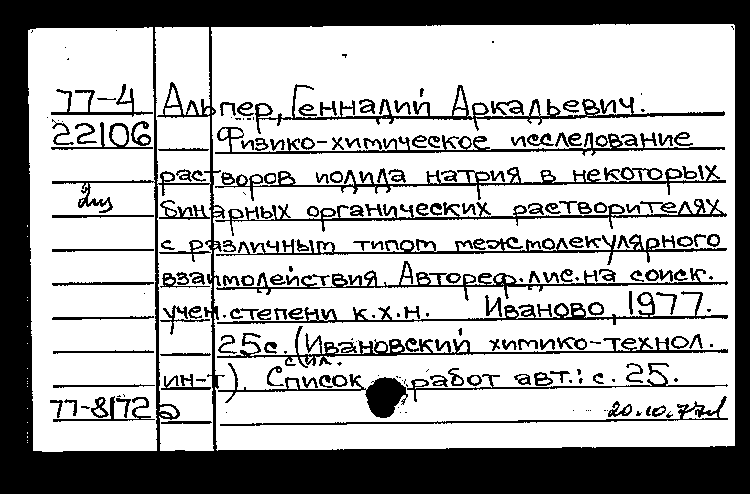 77-4 Альпер, Геннадий Аркадьевич.
22106 Физико-химическое исследование
растворов иодида натрия в некоторых
бинарных органических растворителях
с различным типом межмолекулярного
взаимодействия. Автореф.дис.на соиск.
учен.степени к.х.н. Иваново, 1977.
25с. (Ивановский химико-технол.
с ил.
ин-т). Список работ авт.: с. 25.
77-8172 20.10.77